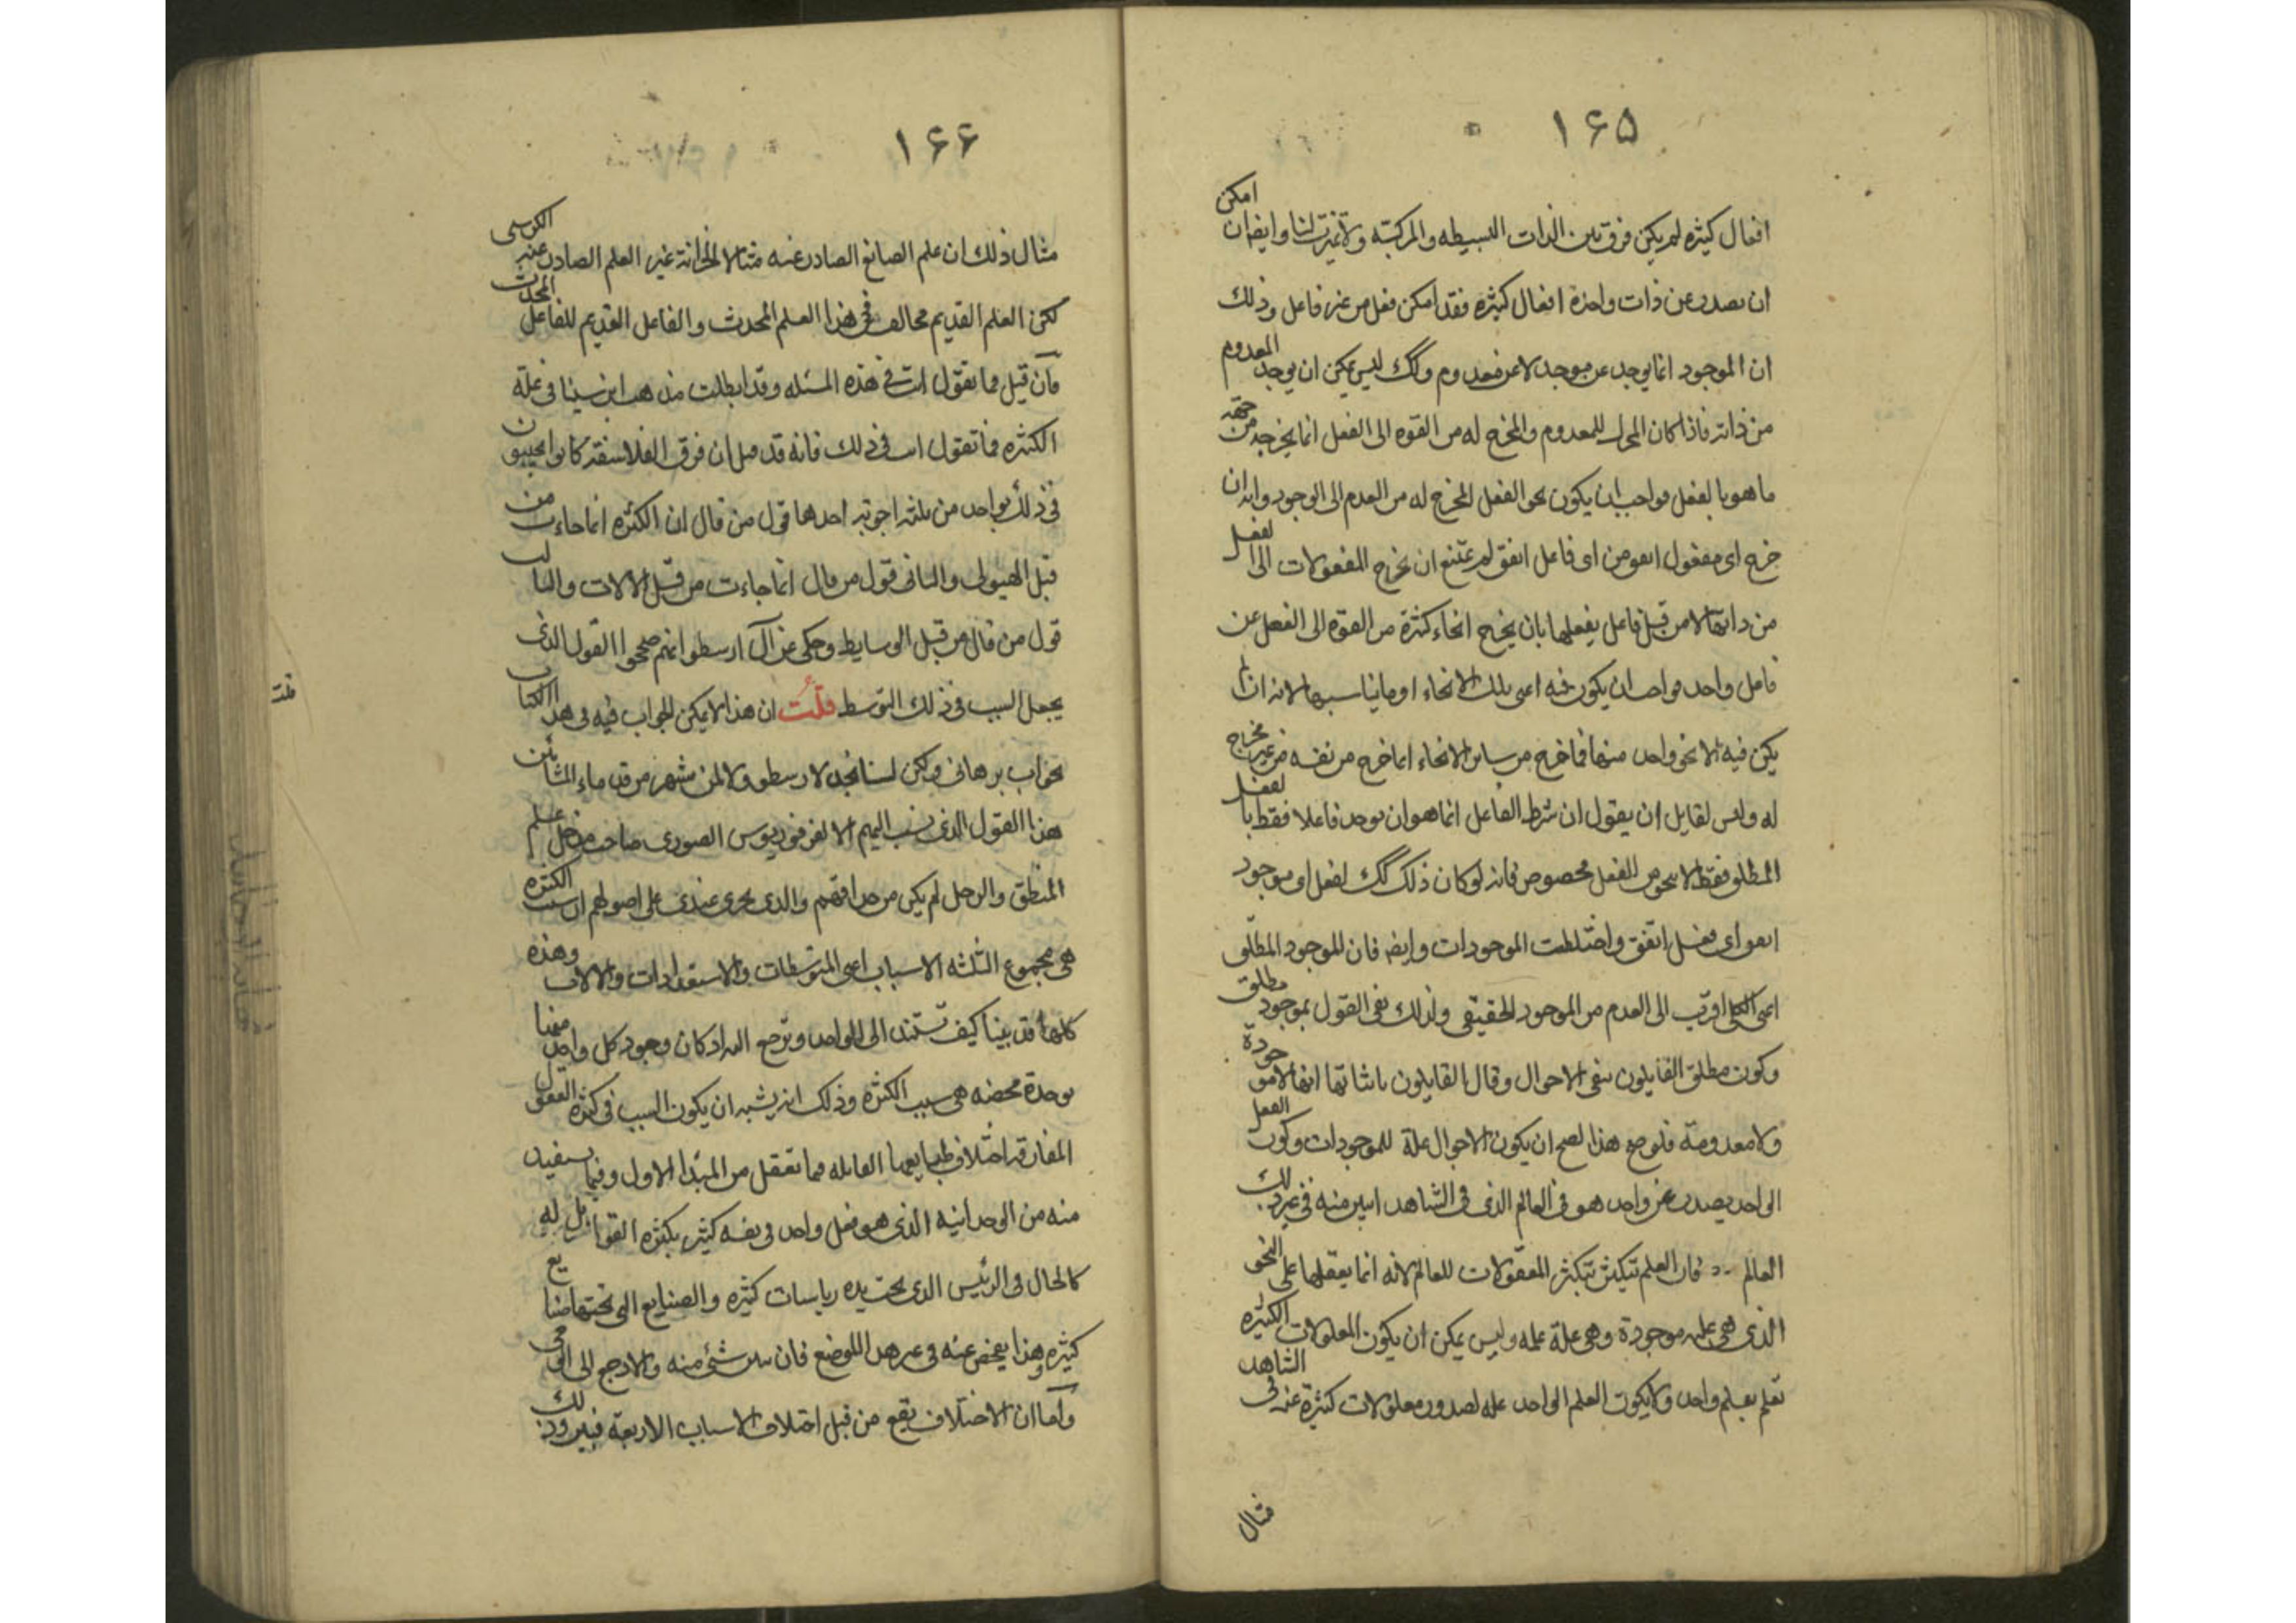 ١۶۵
افعال كثيره لم يكن فرق بين الذات البسيطه والمركبة ولا تميزت لنا وايضا ان امكن
ان يصدر عن ذات واحدة افعال كثيره فقد امكن فعل من غير فاعل وذلك
ان الموجود انما يوجد عن موجد لا عن معدوم وكك ليس يمكن ان يوجد المعدوم
من ذاته فاذا كان المحرك للمعدوم والمخرج له من القوه الى الفعل انما يخرجه من جهة
ما هو بالفعل فواجب ان يكون نحو الفعل المخرج له من العدم الى الوجود وانه ان
خرج اى مفعول اتفق من اى فاعل اتفق لم يمتنع ان تخرج المفعولات الى الفعل
من ذاتها لا من قبل فاعل يفعلها بان يخرج انحاء كثرة من القوه الى الفعل عن
فاعل واحد فواجب ان يكون فيه اعنى تلك الانحاء او ما يناسبها لانه ان لم
يكن فيه الا نحو واحد منها فما خرج من ساير الانحاء انما خرج من نفسه من غير مخرج
له وليس لقايل ان يقول ان شرط الفاعل انما هو ان يوجد فاعلا فقط بالفعل
المطلق فقط لا بنحو من الفعل مخصوص فانه لو كان ذلك كك لفعل اى موجود
اتفق اى فعل اتفق واختلطت الموجودات وايضه فان للموجود المطلق
اعنى الكلى اقرب الى العدم من الموجود الحقيقى ولذلك نفى القول بموجود مطلق
وكون مطلق القايلون بنفى الاحوال وقال القايلون باثباتها انها لا موجودة
ولا معدومة فلو صح هذا لصح ان يكون الاحوال علة للموجودات وكون الفعل
الواحد يصدر عن واحد هو فى العالم الذى فى الشاهد ابين منه فى غير ذلك
العالم فان العلم يتكثر بتكثر المعقولات للعالم لانه انما يعقلها على النحو
الذى هى عليه موجودة وهى علة علمه وليس يمكن ان يكون المعلومات الكثيره
تعلم بعلم واحد ولا يكون العلم الواحد علة لصدور معلولات كثيرة عنه فى الشاهد
مثال
١۶۶
مثال ذلك ان علم الصانع الصادر عنه مثلا الخزانة غير العلم الصادر عنه الكرسى
لكن العلم القديم مخالف فى هذا العلم المحدث والفاعل القديم للفاعل المحدث
فان قيل فما تقول انت فى هذه المسئله وقد ابطلت مذهب ابن سينا فى علة
الكثره فما تقول انت فى ذلك فانه قد قيل ان فرق الفلاسفة كانوا يجيبون
فى ذلك بواحد من ثلثه اجوبة احدها قول من قال ان الكثره انما جاءت من
قبل الهيولى والثانى قول من قال انما جاءت من قبل الالات والثالث
قول من قال من قبل الوسايط وحكى عن آل ارسطو انهم صححوا القول الذى
يجعل السبب فى ذلك التوسط قلتُ ان هذا لا يمكن الجواب فيه فى هذا الكتاب
بجواب برهانى ولكن لسنا نجد لارسطو ولا لمن شهر من قدماء المشائين
هذا القول الذى نسب اليهم الا لفرفوريوس الصورى صاحب مدخل علم
المنطق والرجل لم يكن من حذاقهم والذى يجرى عندى على اصولهم ان سبب الكثره
هى مجموع الثلثه الاسباب اعنى المتوسطات والاستعدادات والالات وهذه
كلها قد بينا كيف تستند الى الواحد وترجع اليه اذ كان وجود كل واحد منها
بوحدة محضه هى سبب الكثره وذلك انه يشبه ان يكون السبب فى كثره العقول
المفارقه اختلاف طبايعها القابله فيما تعقل من المبدا الاول وفيما تستفيد
منه من الوحدانيه الذى هو فعل واحد فى نفسه كثير بكثره القوابل له
كالحال فى الرئيس الذى تحت يده رياسات كثيره والصنايع التى تحتها صنايع
كثيره وهذا يفحص عنه فى غير هذا الموضع فان تبين شئ منه والا رجع الى الوحى
واما ان الاختلاف يقع من قبل اختلاف الاسباب الاربعة فبين وذلك